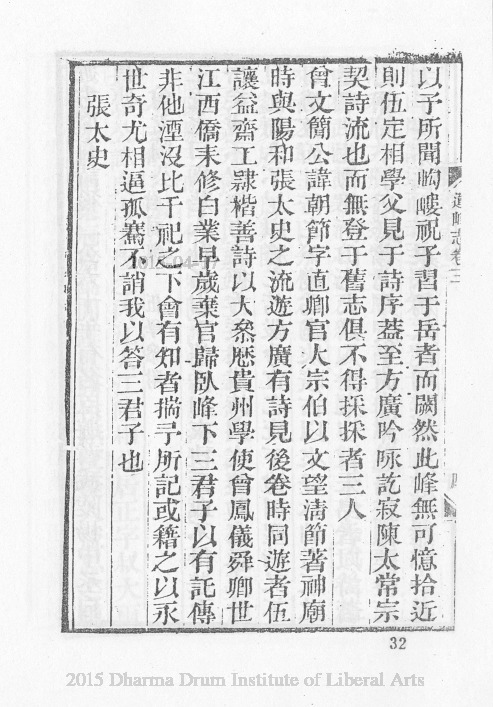 以予所聞岣嶁視子習于岳者而闕然此峰無可憶拾近
則伍定相學父見于詩序葢至方廣吟咏訖寂陳太常宗
契詩流也而無登于舊志俱不得採採者三人
曾文簡公諱朝節字直卿官大宗伯以文望淸節著神廟
時與陽和張太史之流遊方廣有詩見後卷時同遊者伍
讓益齋工隷楷善詩以大叅歴貴州學使曾鳳儀舜卿世
江西僑耒修白業早歲棄官歸臥峰下三君子以有託傳
非他湮沒比干祀之下會有知者揣予所記或藉之以永
世奇尤相逼孤騫不誚我以答三君子也
張太史
志卷三
32
2015 Dharma Drum Institute of Liberal Arts